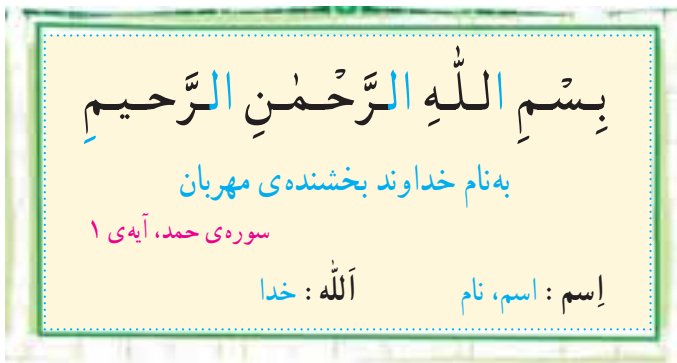 بِسْمِ اللّٰهِ الرَّحْمٰنِ الرَّحیمِ
به‌نام خداوند بخشنده‌ی مهربان
سوره‌ی حمد، آیه‌ی ۱
اِسم : اسم، نام اَللّٰه : خدا